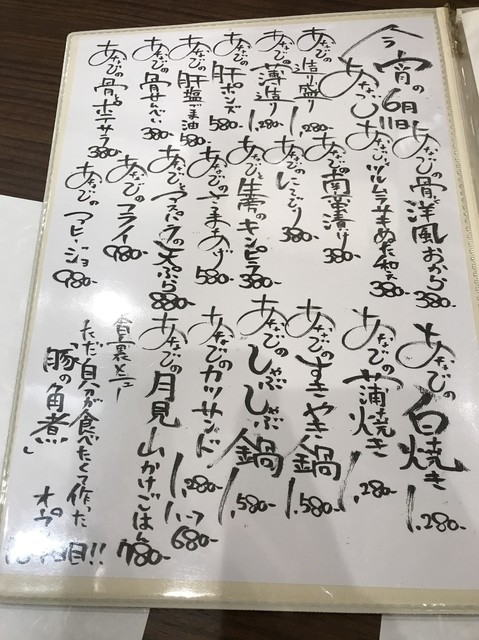 今宵の
6月11日
あなご
あなごの造り盛り 1,280-
あなごの薄造り 1,280-
あなごの肝ポンズ 580-
あなごの肝塩ごま油 580-
あなごの骨せんべい 380-
あなごの骨とポテサラ 380-
あなごの骨と洋風おから 380-
380-
あなごの南蛮漬け 380-
あなごのにこごり 380-
あなごと生姜のキンピラ 380-
あなごのさつまあげ 580-
あなごとアスパラの天ぷら 880-
あなごのフライ 980-
あなごのアヒージョ 980-
あなごの白焼き 1,280-
あなごの蒲焼き 1,280-
あなごのすきやき鍋 1,580-
あなごのしゃぶしゃぶ鍋 1,580-
あなごのカツサンド 1,280-
ハーフ 680-
あなごの月見山かけごはん 780-
ただ自分が食べたくて作った
「豚の角煮」